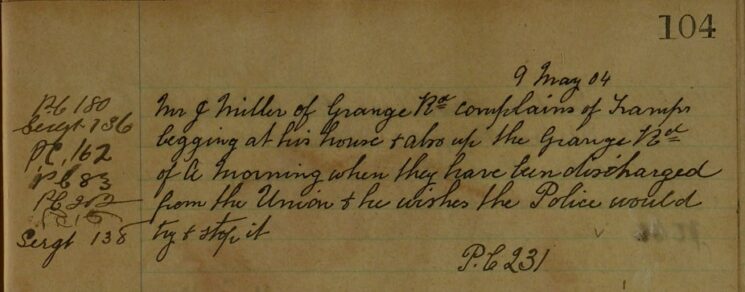 104
9 May 04
PC 180
Sergt 136
PC, 162
PC 83
PC 202
Sergt 138
Mr J Miller of Grange Rd complains of Tramps
begging at his house & also up the Grange Rd
of A Morning when they have been discharged
from the Union & he wishes the Police would
try & stop it
P.C 231